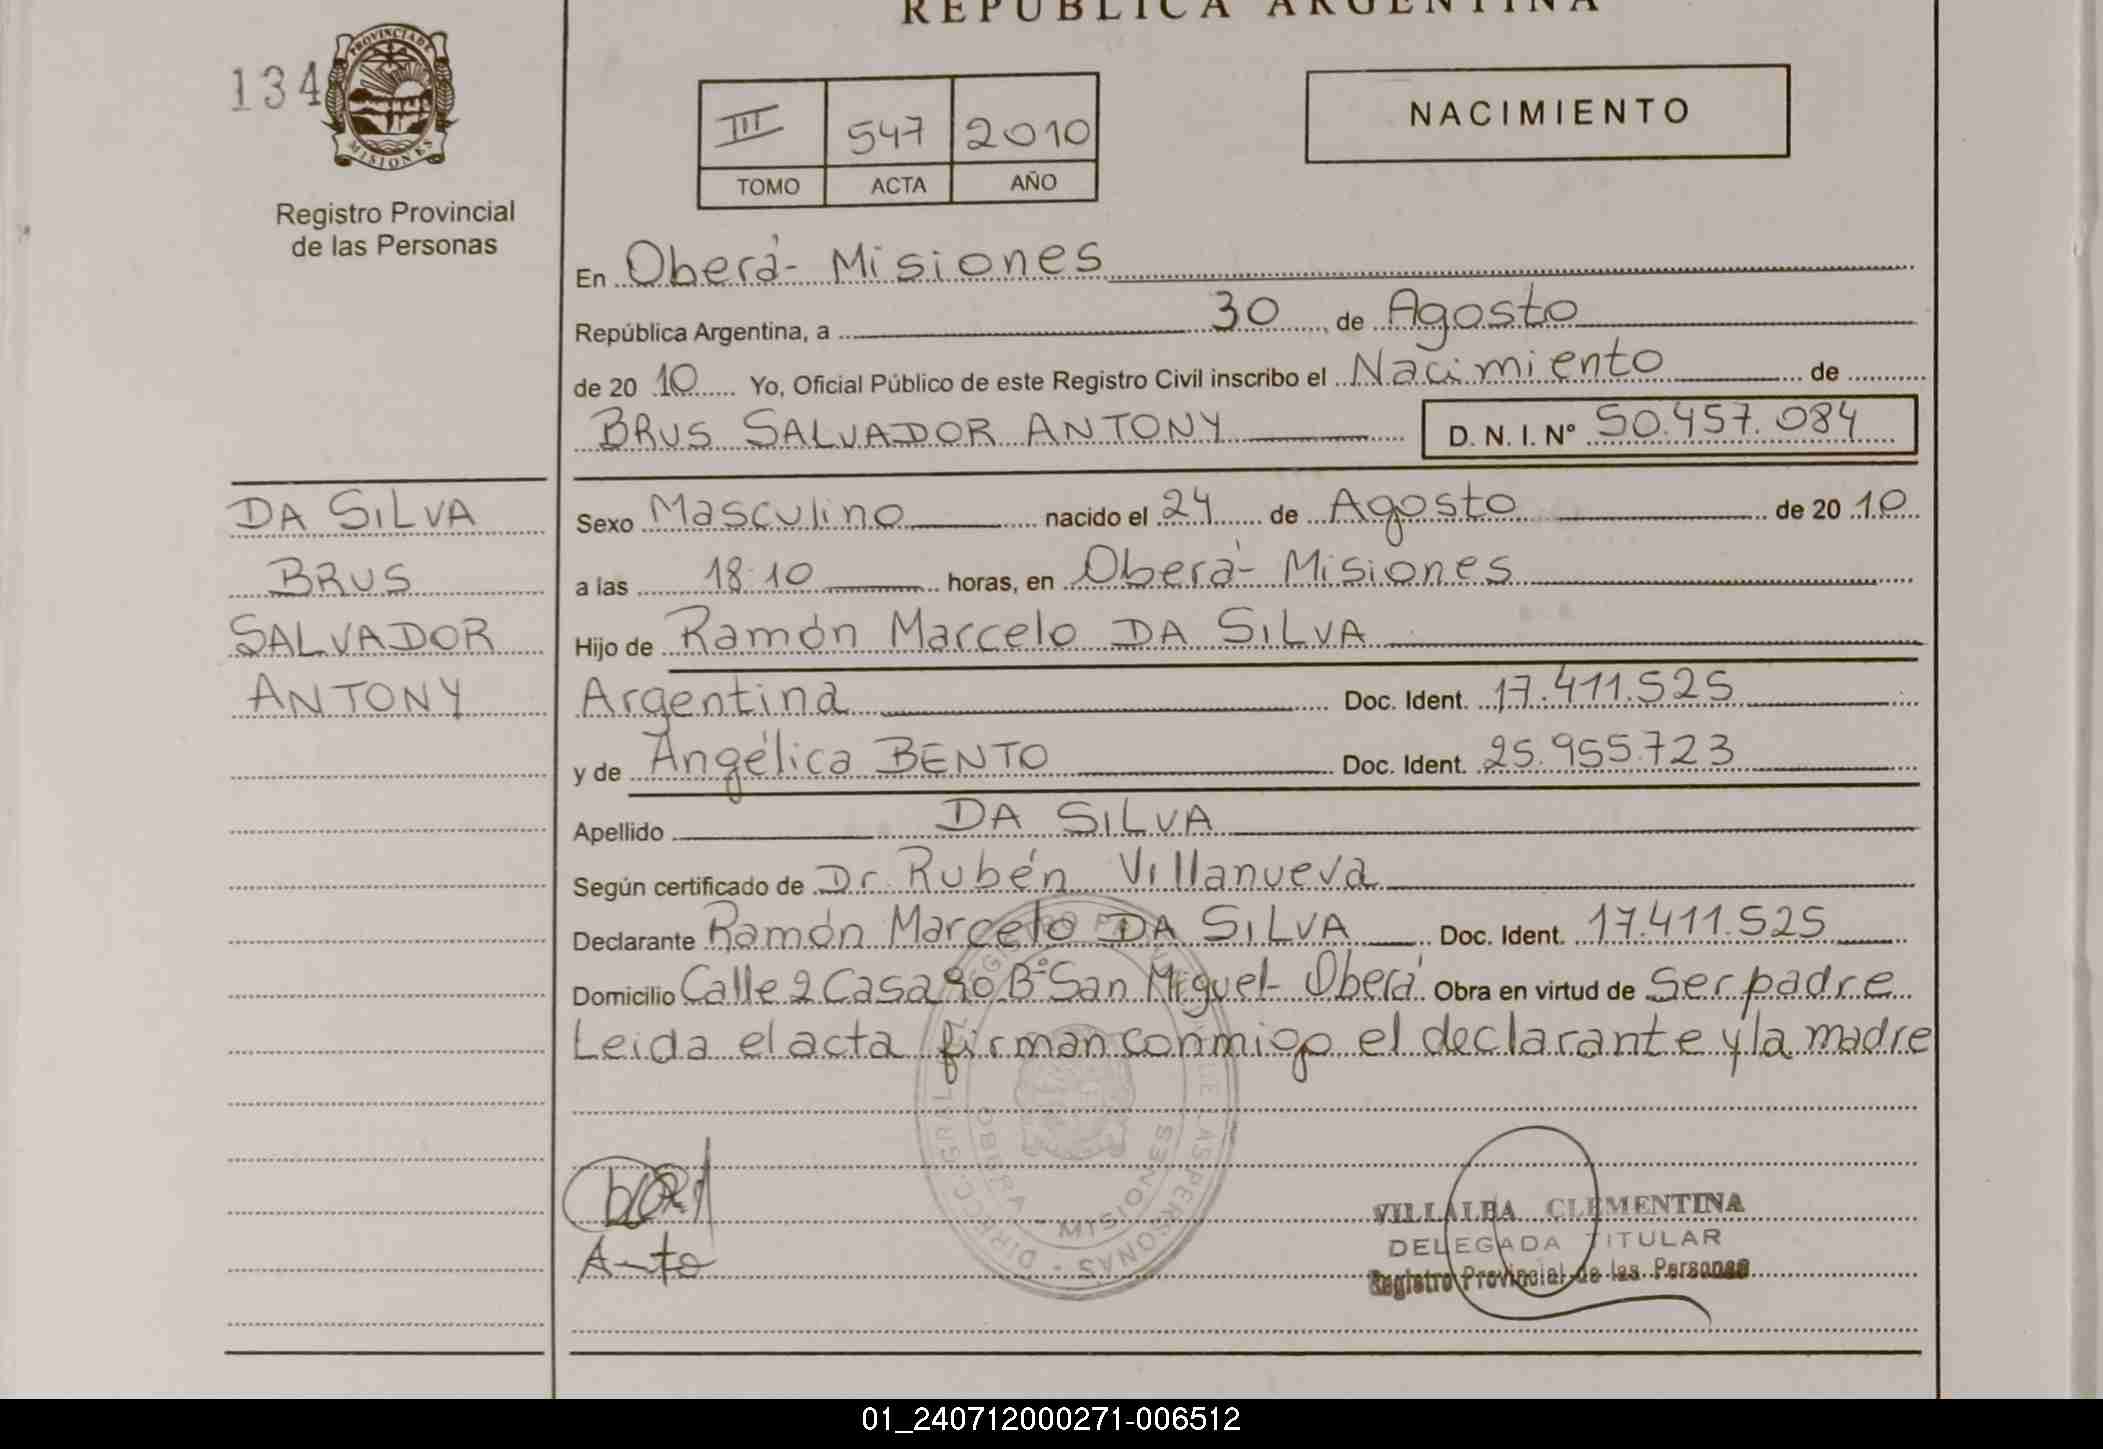 REPUBLICA ARGENTINA
134
PROVINCIA DE
MISIONES
Registro Provincial
de las Personas
III 547 2010
TOMO ACTA AÑO
NACIMIENTO
En Oberá - Misiones
República Argentina, a 30 de Agosto
de 20 10 Yo, Oficial Público de este Registro Civil inscribo el Nacimiento de
BRUS SALVADOR ANTONY D. N. I. Nº 50.457.084
DA SILVA
BRUS
SALVADOR
ANTONY
Sexo Masculino nacido el 24 de Agosto de 20 10
a las 18:10 horas, en Oberá - Misiones
Hijo de Ramón Marcelo DA SILVA
Argentina Doc. Ident. 17.411.525
y de Angélica BENTO Doc. Ident. 25.955.723
Apellido DA SILVA
Según certificado de Dr. Rubén Villanueva
Declarante Ramón Marcelo DA SILVA Doc. Ident. 17.411.525
Domicilio Calle 2 Casa 90 Bº San Miguel - Oberá Obra en virtud de Ser padre
Leida el acta firman conmigo el declarante y la madre
OBERA - MISIONES
VILLALBA CLEMENTINA
DELEGADA TITULAR
Registro Provincial de las Personas
01_240712000271-006512